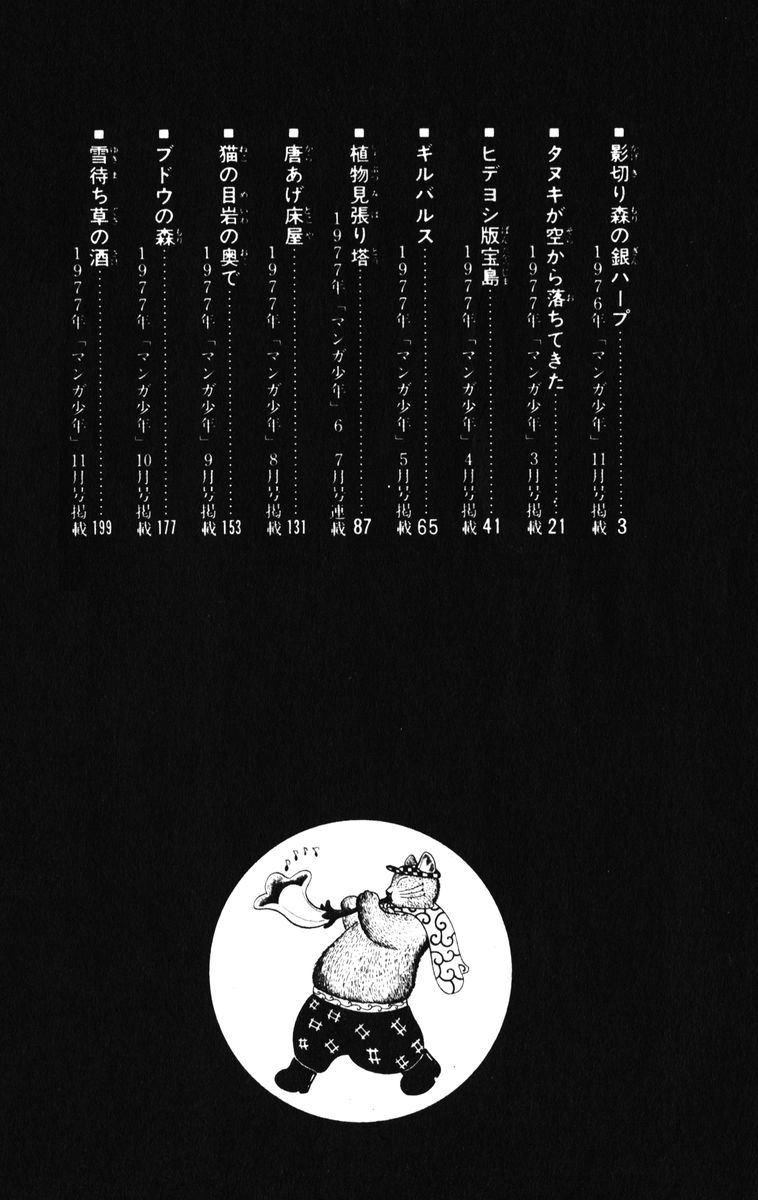 ■影切り森の銀ハープ……………3
1976年「マンガ少年」11月号掲載
■タヌキが空から落ちてきた……………21
1977年「マンガ少年」3月号掲載
■ヒデヨシ版宝島……………41
1977年「マンガ少年」4月号掲載
■ギルバルス……………65
1977年「マンガ少年」5月号掲載
■植物見張り塔……………87
1977年「マンガ少年」6 7月号連載
■唐あげ床屋……………131
1977年「マンガ少年」8月号掲載
■猫の目岩の奥で……………153
1977年「マンガ少年」9月号掲載
■ブドウの森……………177
1977年「マンガ少年」10月号掲載
■雪待ち草の酒……………199
1977年「マンガ少年」11月号掲載